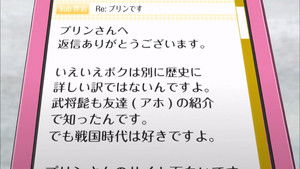 Re: プリンです
プリンさんへ
返信ありがとうございます。
いえいえボクは別に歴史に
詳しい訳ではないんですよ。
武将髭も友達(アホ)の紹介
で知ったんです。
でも戦国時代は好きですよ。